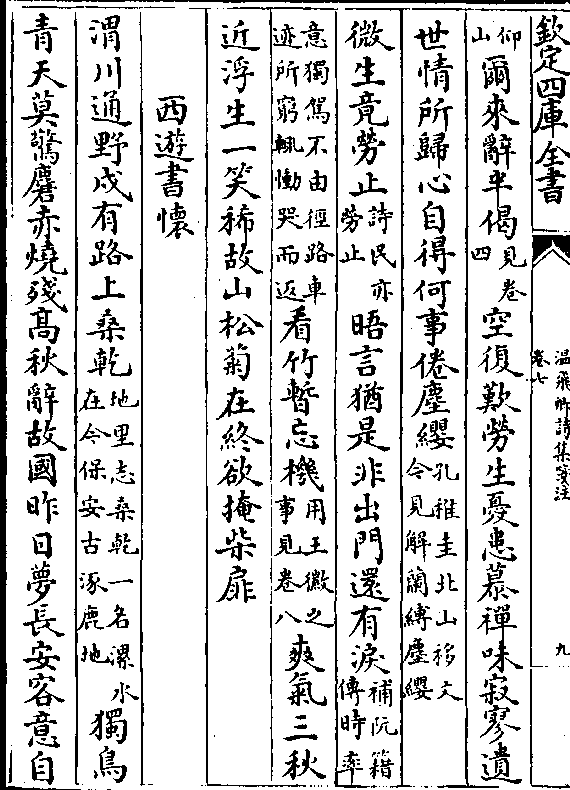 欽定四庫全書
温飛卿詩集箋注
卷七
九
仰山爾來辭半偈見卷四空復歎勞生憂患慕禪味寂寥遺
世情所歸心自得何事倦塵纓孔稚圭北山移文今見解蘭縛塵纓
微生竟勞止詩民亦勞止晤言猶是非出門還有淚補阮籍傳時率
意獨駕不由徑路車迹所窮輒慟哭而返看竹暫忘機用王徽之事見卷八爽氣三秋
近浮生一笑稀故山松菊在終欲掩柴扉
西遊書懷
渭川通野戍有路上桑乾地里志桑乾一名漯水在今保安古涿鹿地獨鳥
青天莫驚麏赤燒殘高秋辭故國昨日夢長安客意自